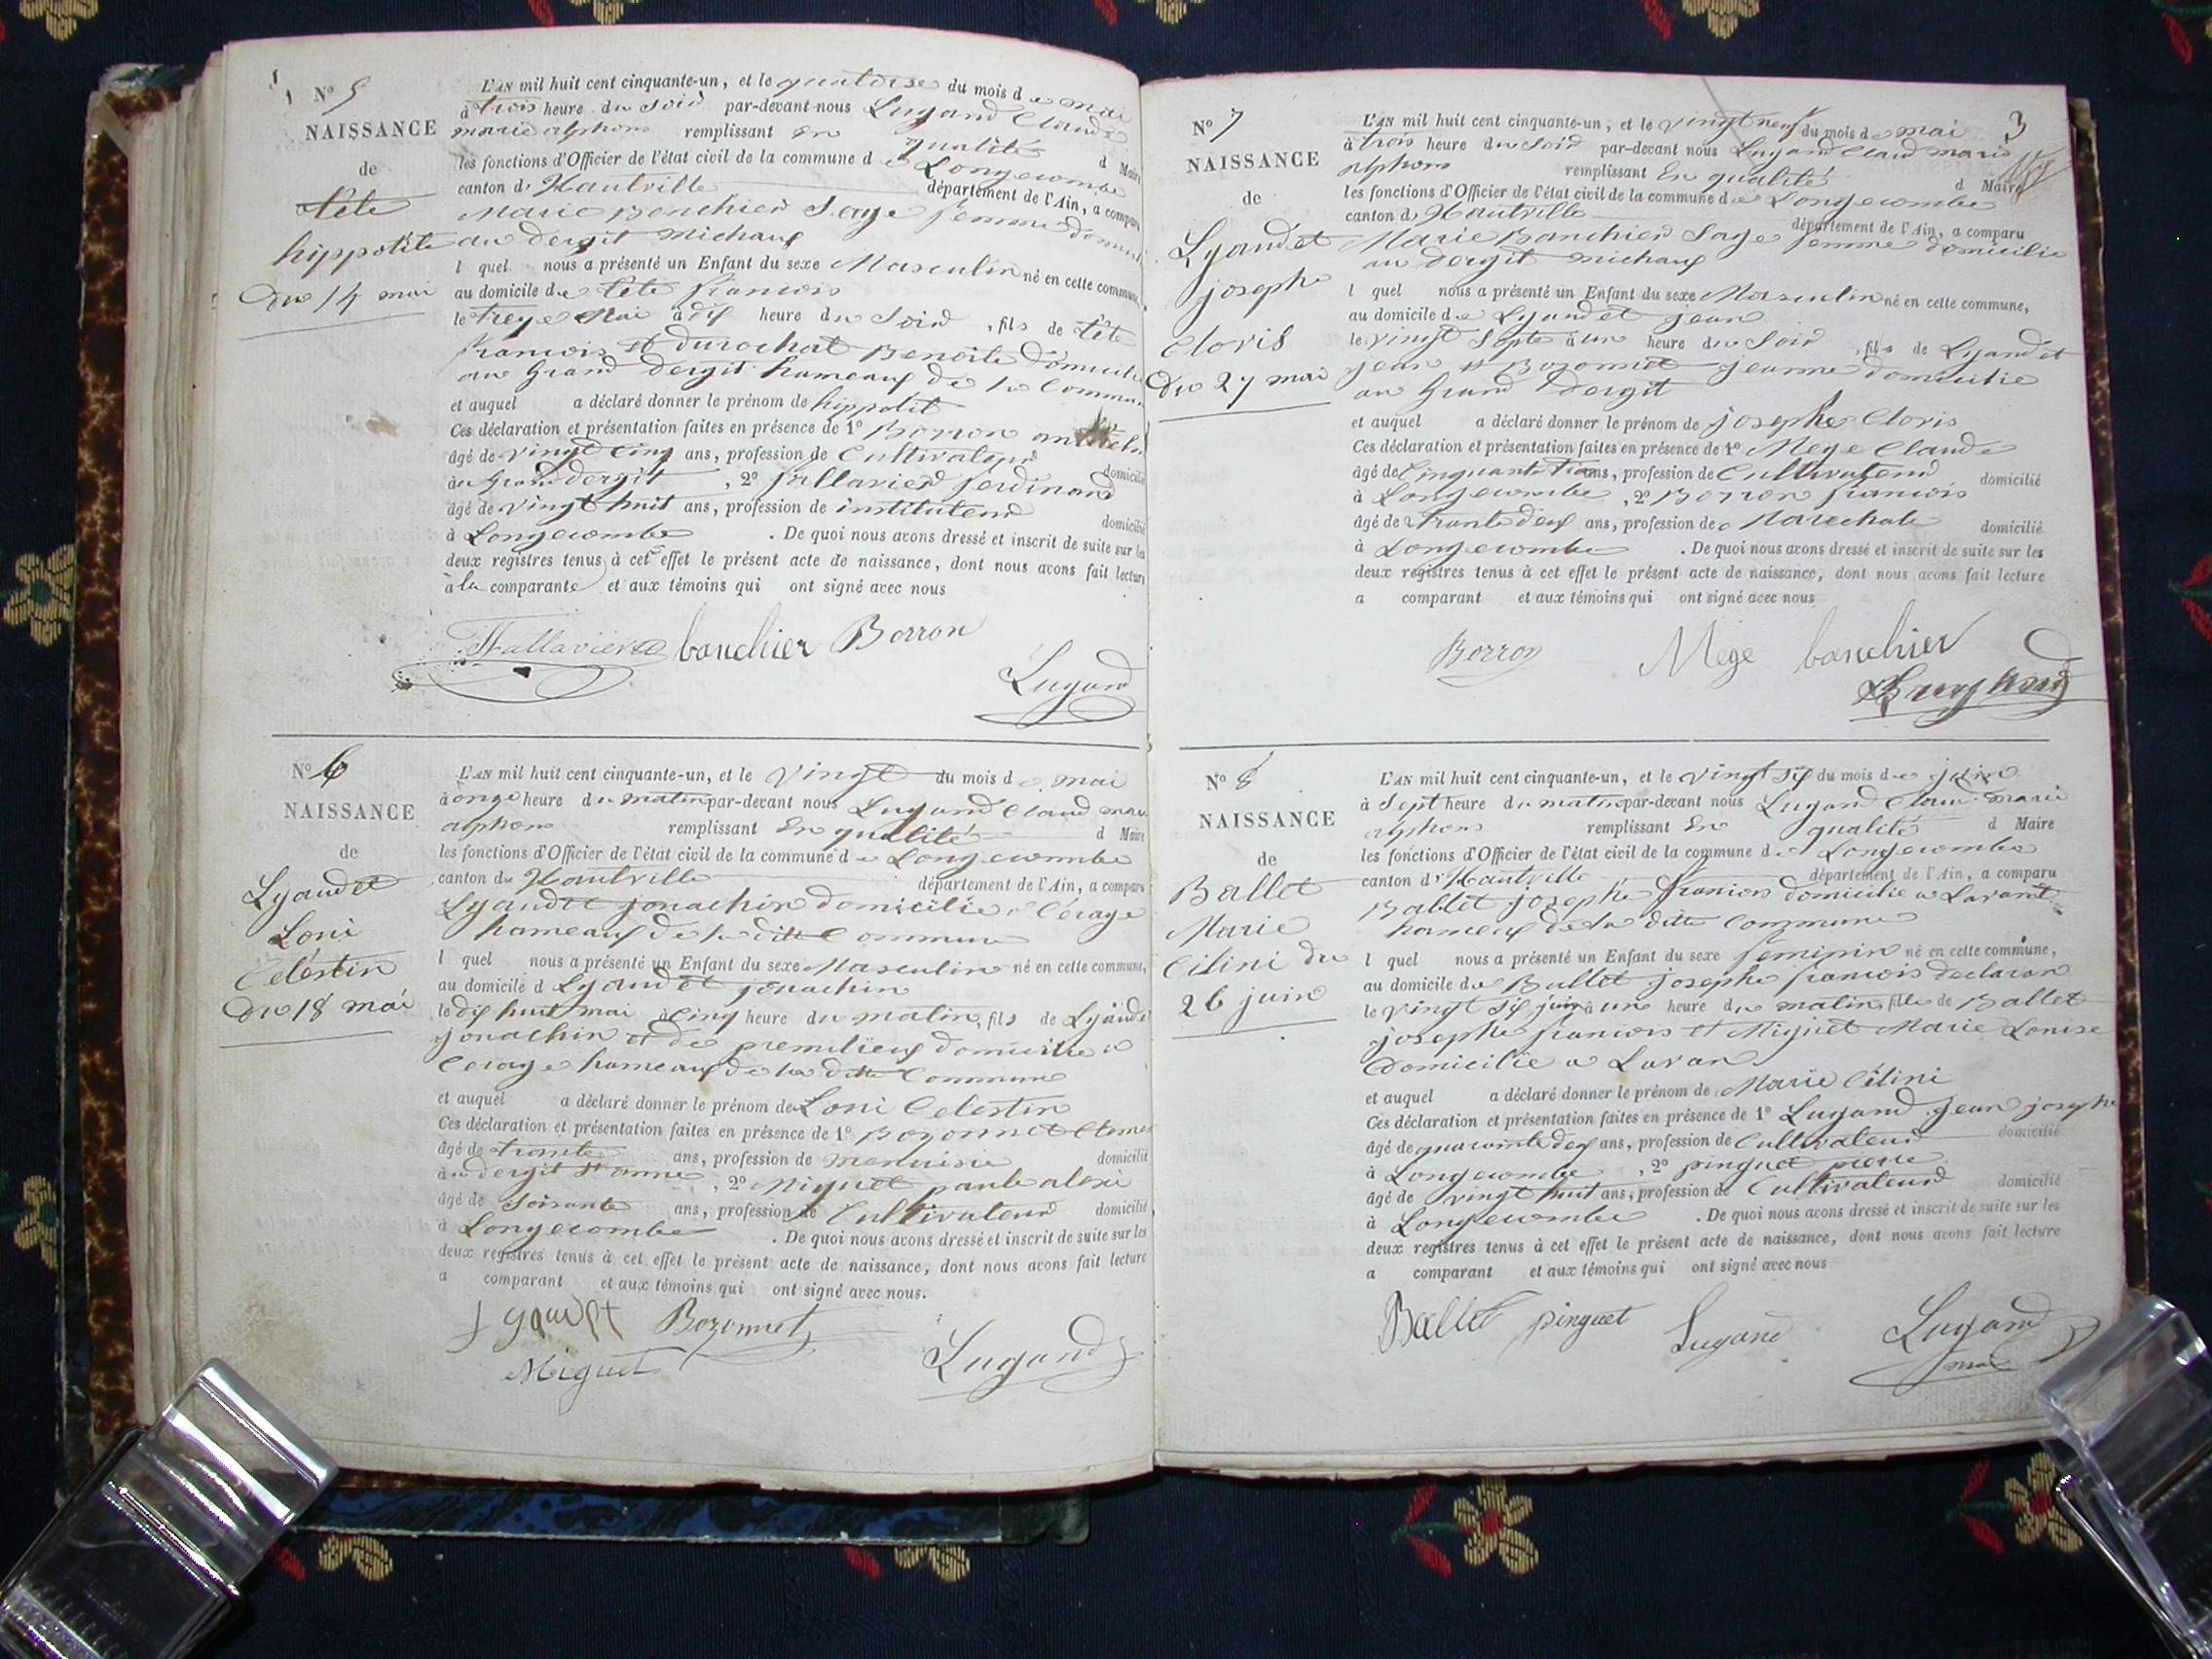 N° 5
NAISSANCE
de
tête
hippolite
du 14 mai
L'AN mil huit cent cinquante-un, et le quatorze du mois de mai
à trois heure du soir par-devant nous Lugand Claude
marie alphons remplissant en qualité d Maire
les fonctions d'Officier de l'état civil de la commune de Longecombe
canton d'Hautville département de l'Ain, a comparu
Marie Bouchier Sage femme
au dergit michaux
l quel nous a présenté un Enfant du sexe Masculin né en cette commune,
au domicile de tête francois
le treze Mai à dix heure du Soir , fils de tête
francois et durochat Benoite
au Grand dergit hameaux de la
et auquel a déclaré donner le prénom de hippolit
Ces déclaration et présentation faites en présence de 1° Borron
âgé de vingt cinq ans, profession de Cultivateur domicilié
au Grand dergit , 2° fallavier ferdinand
âgé de vingt huit ans, profession de instituteur domicilié
à Longecombe . De quoi nous avons dressé et inscrit de suite sur les
deux registres tenus à cet effet le présent acte de naissance, dont nous avons fait lecture
à la comparante et aux témoins qui ont signé avec nous
bouchier Borron
Lugand
N° 6
NAISSANCE
de
Lyaudet
Loni
Célestin
du 18 mai
L'AN mil huit cent cinquante-un, et le Vingt du mois de mai
à onze heure du matin par-devant nous Lugand Claud
alphons remplissant En qualité d Maire
les fonctions d'Officier de l'état civil de la commune de Longecombe
canton du Hautville département de l'Ain, a comparu
Lyaudet jouachin domicilie
hameaux de la ditte Commune
l quel nous a présenté un Enfant du sexe Masculin né en cette commune,
au domicile d Lyaudet jouachin
le dix huit mai à cinq heure du matin, fils de
jouachin et de premilieux domicilie a
Cerage hameaux de la ditte Commune
et auquel a déclaré donner le prénom de Loni Celestin
Ces déclaration et présentation faites en présence de 1° Bozonnet
âgé de trante ans, profession de menuisie domicilié
à au dergit , 2° Miguet paule alexi
âgé de Soisante ans, profession de Cultivateur domicilié
à Longecombe . De quoi nous avons dressé et inscrit de suite sur les
deux registres tenus à cet effet le présent acte de naissance, dont nous avons fait lecture
a comparant et aux témoins qui ont signé avec nous.
Bozonnet
Miguet Lugand
N° 7
3
NAISSANCE
de
Lyaudet
josephe
cloris
du 27 mai
L'AN mil huit cent cinquante-un, et le vingt neuf du mois de mai
à trois heure du Soir par-devant nous Lugand Claud marie
alphons remplissant En qualité d Maire
les fonctions d'Officier de l'état civil de la commune de Longecombe
canton d Hautville département de l'Ain, a comparu
Marie Bouchier Sage femme domicilie
au dergit michaux
l quel nous a présenté un Enfant du sexe Masculin né en cette commune,
au domicile de Lyaudet jean
le vingt Septe à une heure du Soir , fils de Lyaudet
jean et Bozonnet jeanne domicilie
au Grand dergit
et auquel a déclaré donner le prénom de josephe Cloris
Ces déclaration et présentation faites en présence de 1° Mege Claude
âgé de Cinquante ans, profession de Cultivateur domicilié
à Longecombe , 2° Borron francois
âgé de trante deux ans, profession de Marechale domicilié
à Longecombe . De quoi nous avons dressé et inscrit de suite sur les
deux registres tenus à cet effet le présent acte de naissance, dont nous avons fait lecture
a comparant et aux témoins qui ont signé avec nous
Borron Mege bouchier
N° 8
NAISSANCE
de
Ballet
Marie
Cilini du
26 juin
L'AN mil huit cent cinquante-un, et le vingt six du mois de juin
à Sept heure du matin par-devant nous Lugand Claud marie
alphons remplissant En qualité d Maire
les fonctions d'Officier de l'état civil de la commune de Longecombe
canton d'Hautville département de l'Ain, a comparu
Ballet josephe francois domicilie a Lavant
hameux de la ditte Commune
l quel nous a présenté un Enfant du sexe feminin né en cette commune,
au domicile de Ballet josephe francois declaran
le vingt six juin à une heure du matin, fille de Ballet
josephe francois et Miguet Marie Louise
Domicilie a Lavan
et auquel a déclaré donner le prénom de Marie Célini
Ces déclaration et présentation faites en présence de 1° Lugand jean josephe
âgé de quarante deux ans, profession de Cultivateur domicilié
à Longecombe , 2° pinguet pierre
âgé de vingt huit ans, profession de Cultivateur domicilié
à Longecombe . De quoi nous avons dressé et inscrit de suite sur les
deux registres tenus à cet effet le présent acte de naissance, dont nous avons fait lecture
a comparant et aux témoins qui ont signé avec nous
Ballet pinguet Lugand Lugand